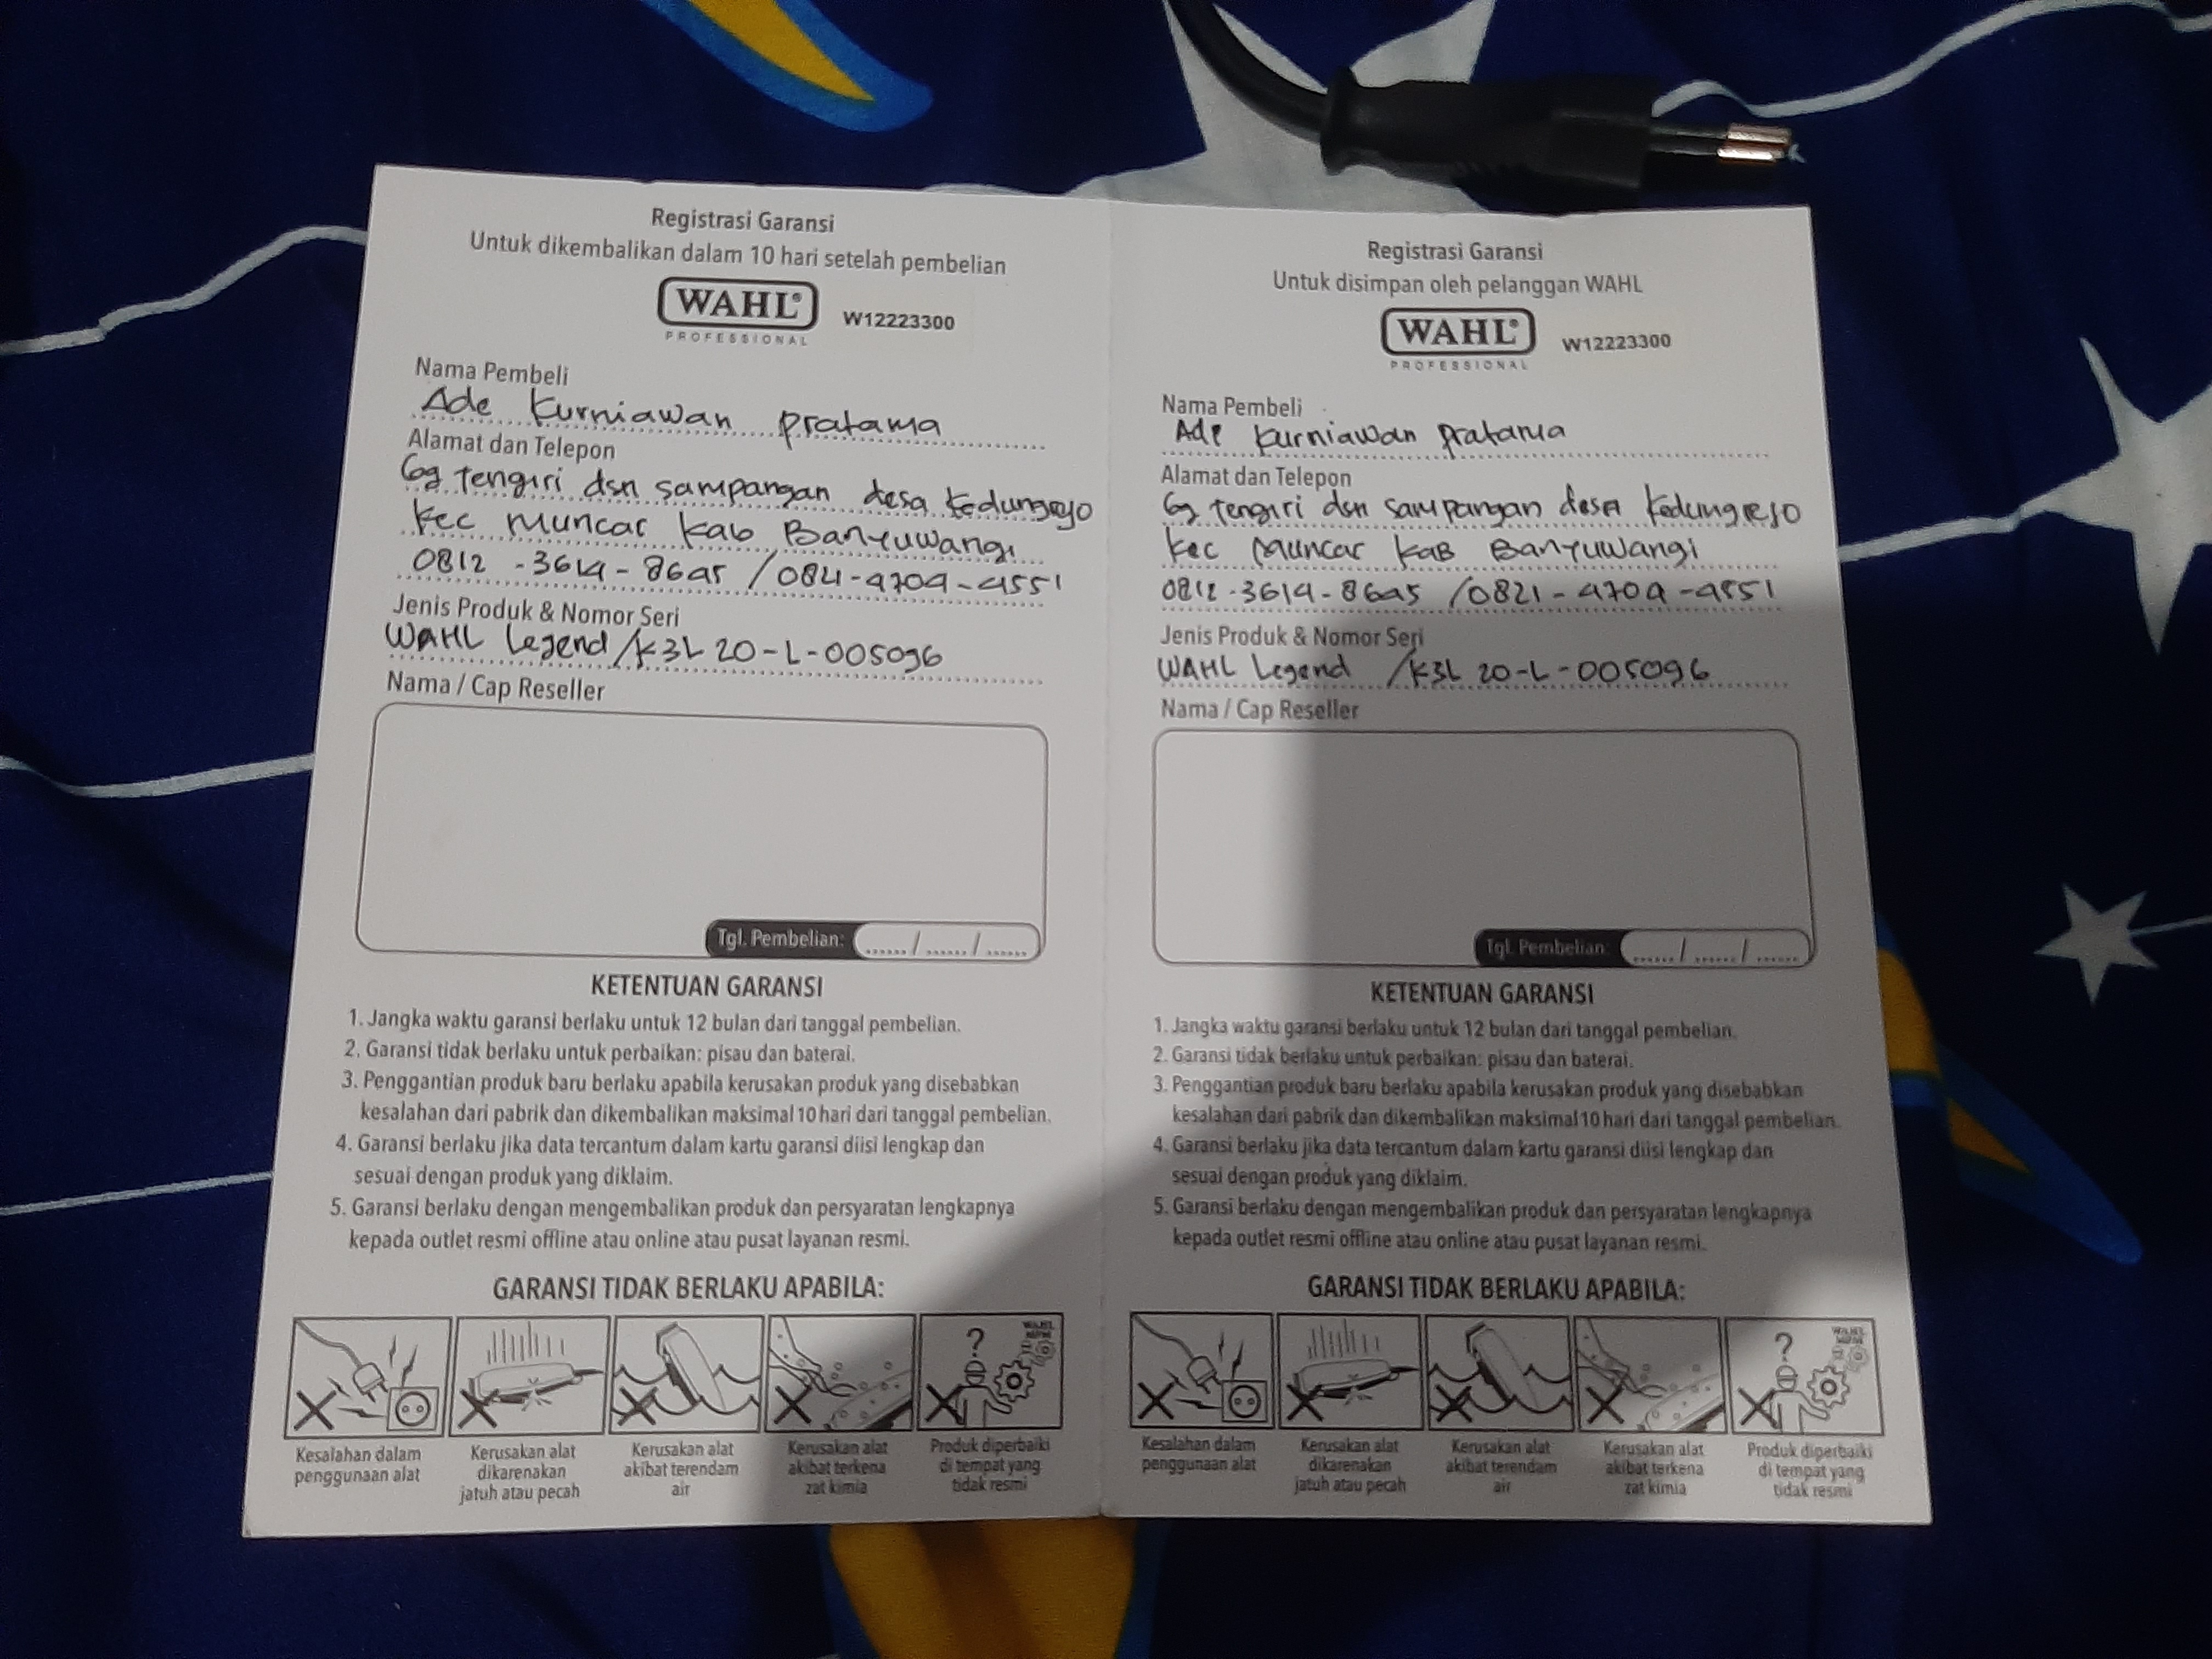 Registrasi Garansi
Untuk dikembalikan dalam 10 hari setelah pembelian
WAHL®
PROFESSIONAL
W12223300
Nama Pembeli
Ade Kurniawan Pratama
Alamat dan Telepon
Gg tengiri dsn sampangan desa Kedungrejo
Kec Muncar Kab Banyuwangi
Jenis Produk & Nomor Seri
WAHL Legend /K3L 20-L-005096
Nama / Cap Reseller
Tgl. Pembelian: ...... / ...... / ......
KETENTUAN GARANSI
1. Jangka waktu garansi berlaku untuk 12 bulan dari tanggal pembelian.
2. Garansi tidak berlaku untuk perbaikan: pisau dan baterai.
3. Penggantian produk baru berlaku apabila kerusakan produk yang disebabkan
kesalahan dari pabrik dan dikembalikan maksimal 10 hari dari tanggal pembelian.
4. Garansi berlaku jika data tercantum dalam kartu garansi diisi lengkap dan
sesuai dengan produk yang diklaim.
5. Garansi berlaku dengan mengembalikan produk dan persyaratan lengkapnya
kepada outlet resmi offline atau online atau pusat layanan resmi.
GARANSI TIDAK BERLAKU APABILA:
?
Kesalahan dalam
penggunaan alat
Kerusakan alat
dikarenakan
jatuh atau pecah
Kerusakan alat
akibat terendam
air
Kerusakan alat
akibat terkena
zat kimia
Produk diperbaiki
di tempat yang
tidak resmi
Registrasi Garansi
Untuk disimpan oleh pelanggan WAHL
WAHL®
PROFESSIONAL
W12223300
Nama Pembeli
Ade Kurniawan Pratama
Alamat dan Telepon
Gg tengiri dsn sampangan desa Kedungrejo
Kec Muncar Kab Banyuwangi
Jenis Produk & Nomor Seri
WAHL Legend /K3L 20-L-005096
Nama / Cap Reseller
Tgl. Pembelian: ...... / ...... / ......
KETENTUAN GARANSI
1. Jangka waktu garansi berlaku untuk 12 bulan dari tanggal pembelian.
2. Garansi tidak berlaku untuk perbaikan: pisau dan baterai.
3. Penggantian produk baru berlaku apabila kerusakan produk yang disebabkan
kesalahan dari pabrik dan dikembalikan maksimal 10 hari dari tanggal pembelian.
4. Garansi berlaku jika data tercantum dalam kartu garansi diisi lengkap dan
sesuai dengan produk yang diklaim.
5. Garansi berlaku dengan mengembalikan produk dan persyaratan lengkapnya
kepada outlet resmi offline atau online atau pusat layanan resmi.
GARANSI TIDAK BERLAKU APABILA:
?
Kesalahan dalam
penggunaan alat
Kerusakan alat
dikarenakan
jatuh atau pecah
Kerusakan alat
akibat terendam
air
Kerusakan alat
akibat terkena
zat kimia
Produk diperbaiki
di tempat yang
tidak resmi